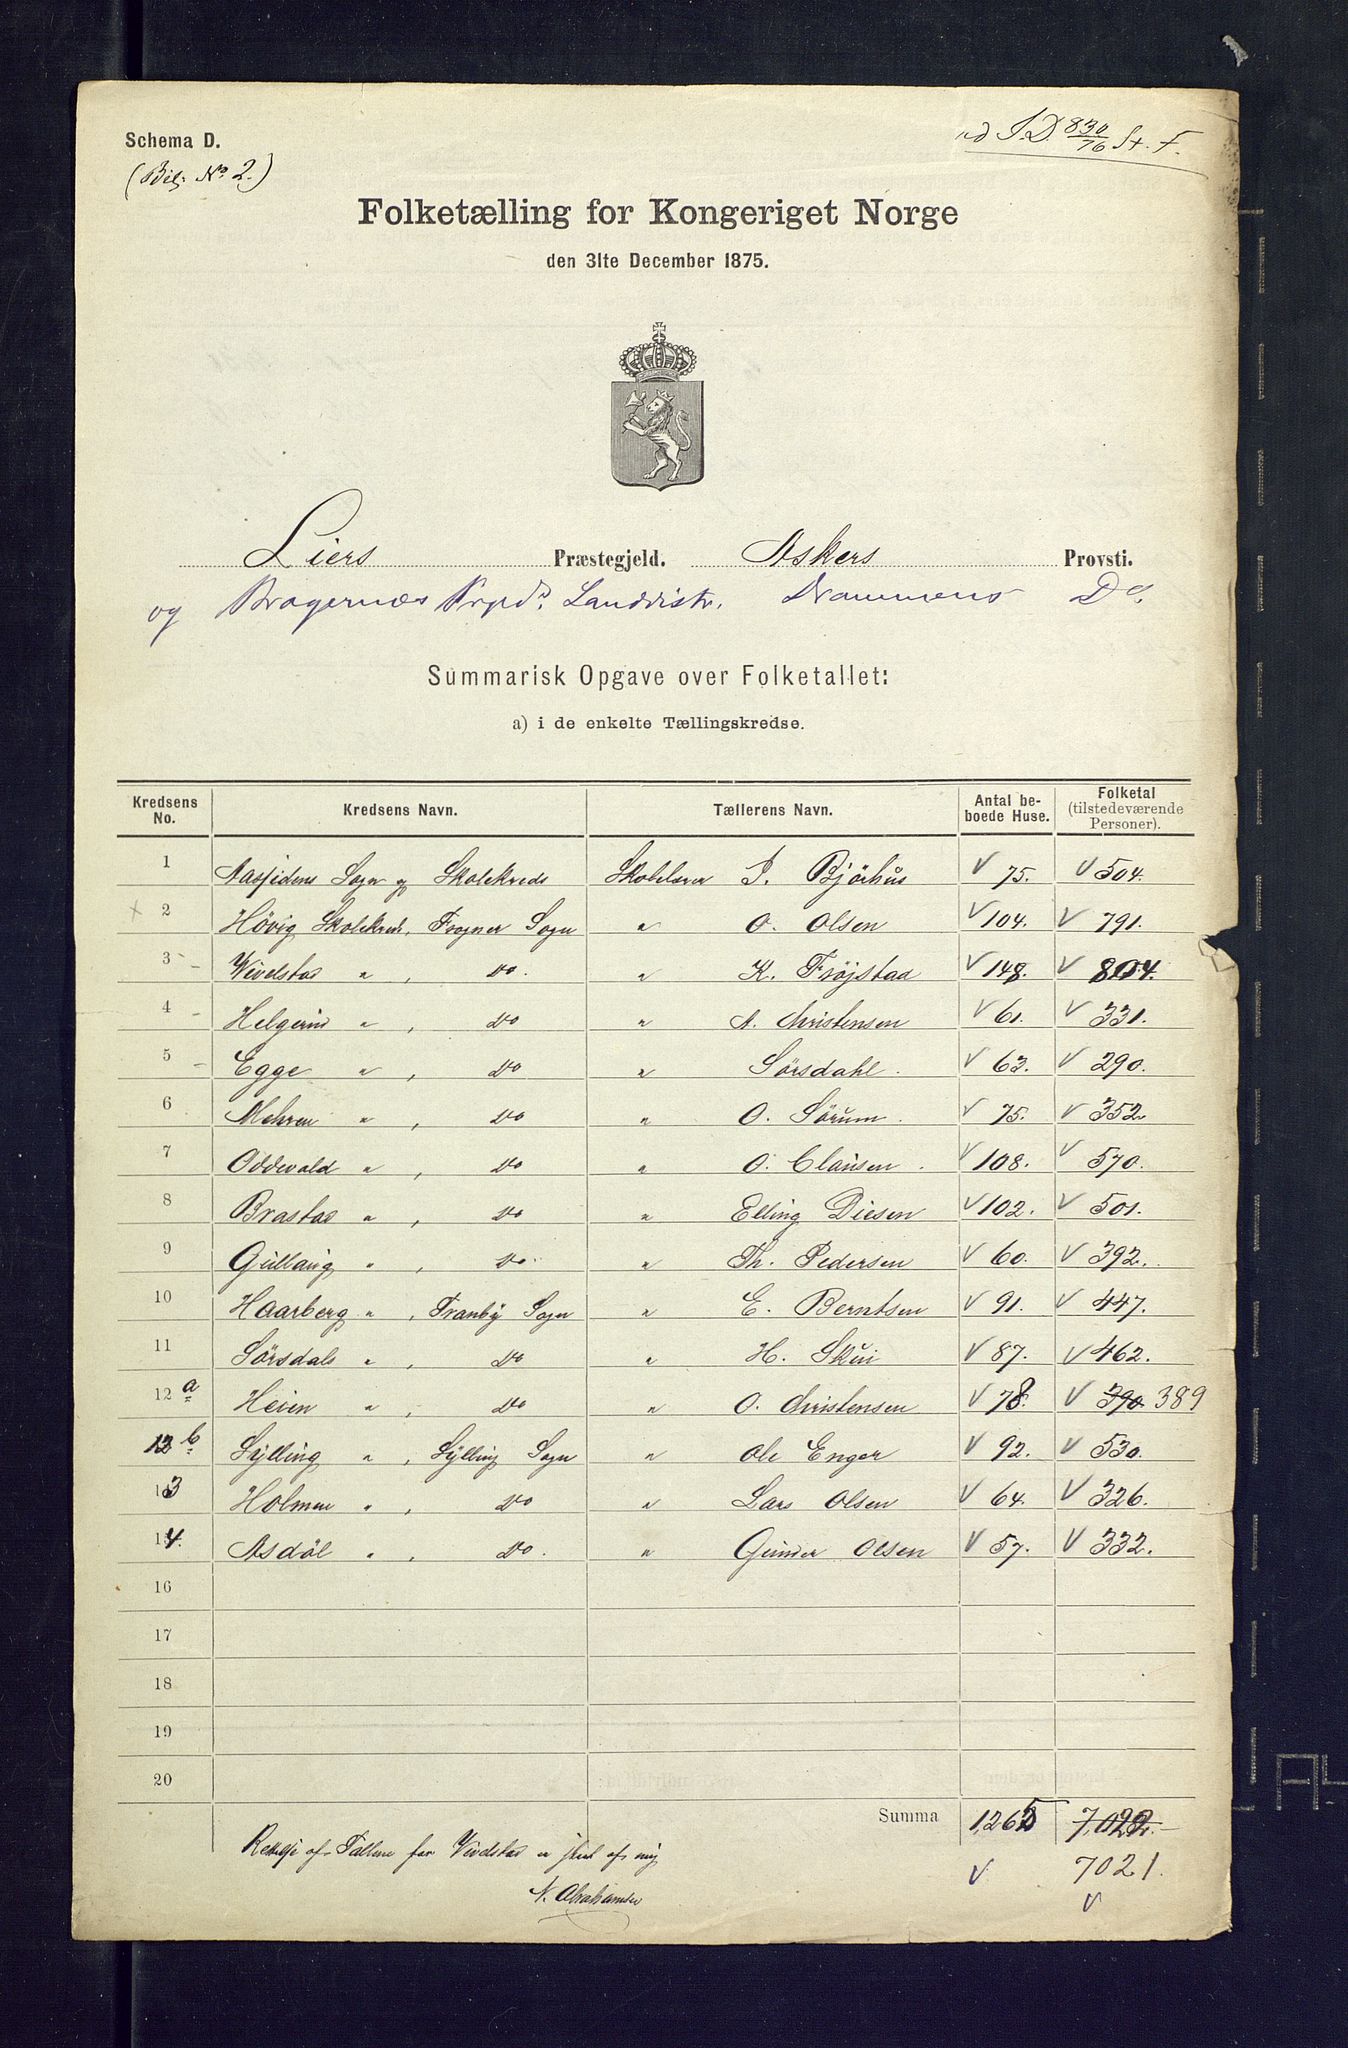 Schema D.
(Bil. No 2.)
ad I.D. 830/76 St. F.
Folketælling for Kongeriget Norge
den 31te December 1875.
Liers Præstegjeld. Askers Provsti.
og Bragernæs Prgjd. Landdistr. Drammens Do.
Summarisk Opgave over Folketallet:
a) i de enkelte Tællingskredse.
Kredsens No. Kredsens Navn. Tællerens Navn. Antal beboede Huse. Folketal (tilstedeværende Personer).
1 Aassidens Sogn og Skolekreds Skolelærer J. Bjørhus V 75. V 504.
2 Høvig Skolekreds, Frogner Sogn " O. Olsen V 104. V 791.
3 Vivelstad " , Do. " K. Frøjstad V 148. V 804.
4 Helgerud " , Do " A. Christensen V 61. V 331.
5 Egge " , Do " Sørsdahl. V 63. V 290.
6 Mehren " , Do " O. Sørum. V 75. V 352.
7 Oddevald " , Do " O. Clausen. V 108. V 570.
8 Brastad " , Do " Elling Diesen V 102. V 501.
9 Gullaug " , Do. " Th. Pedersen V 60. V 392.
10 Haarberg " , Tranby Sogn " E. Berntsen V 91. V 447.
11 Sørsdals " , Do " H. Skui V 87. V 462.
12 a Heien " , Do " O. Christensen V 78. V 390. 389
12 b Sylling " , Sylling Sogn " Ole Enger V 92. V 530.
13 Holmen " , Do " Lars Olsen V 64. V 326.
14. Asdøl " , Do. " Gunder Olsen V 57. V 332.
16
17
18
19
20
Summa 1,265 7,022.
V 7021.
V
Rettelse af Tallene for Vivelstad er skeet af mig
N. Abrahamsen